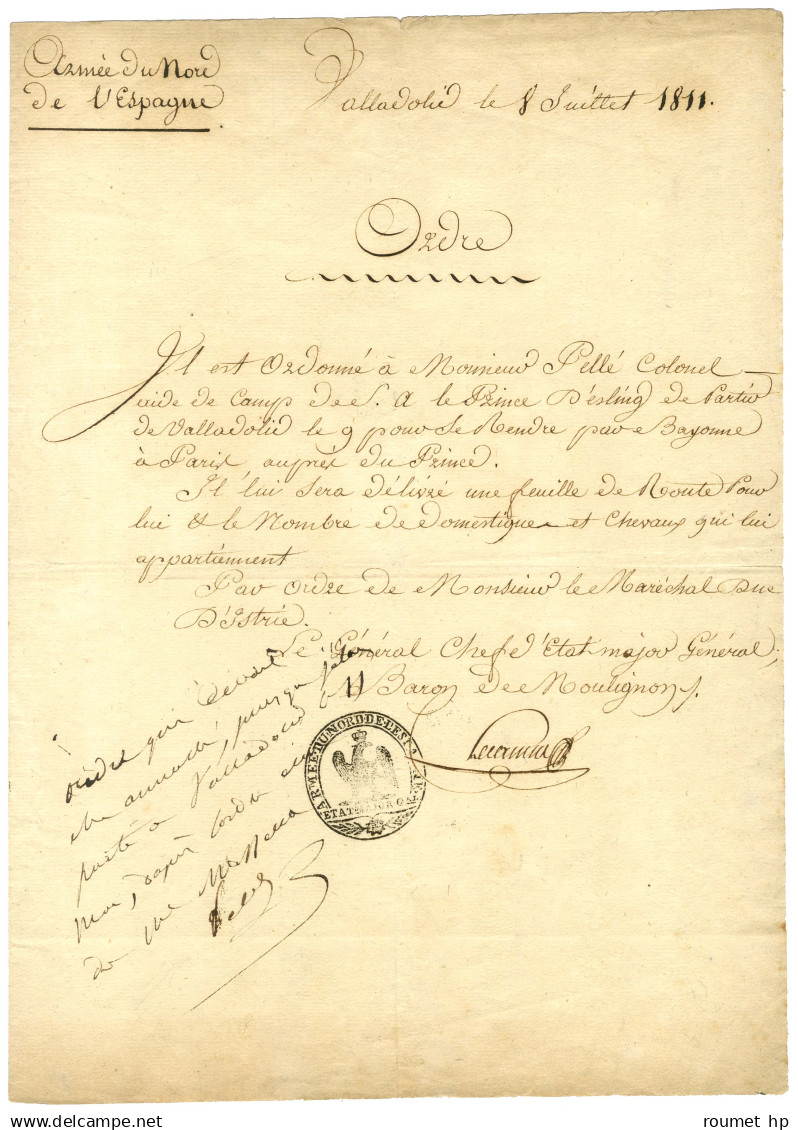 Armée du Nord
de l'Espagne
Valladolid le 8 Juillet 1811.
Ordre
Il est Ordonné à Monsieur Pellé Colonel
aide de Camp de S. A le Prince D'esling de Partir
de Valladolid le 9 pour Se Rendre par Bayonne
à Paris auprès du Prince.
Il lui sera délivré une feuille de Route Pour
lui & le Nombre de domestique et Chevaux qui lui
appartiennent
Par Ordre de Monsieur le Maréchal Duc
D'Istrie.
Le Général Chef d'Etat major Général,
Baron de Noulignon
ARMÉE DU NORD DE L'ESPAGNE
ETAT MAJOR GAL
ordre qui devait
être annullé, puisque
parti de Valladolid
11
moi, d'après l'ordre
de Me Massena
Pelet
roumet hp